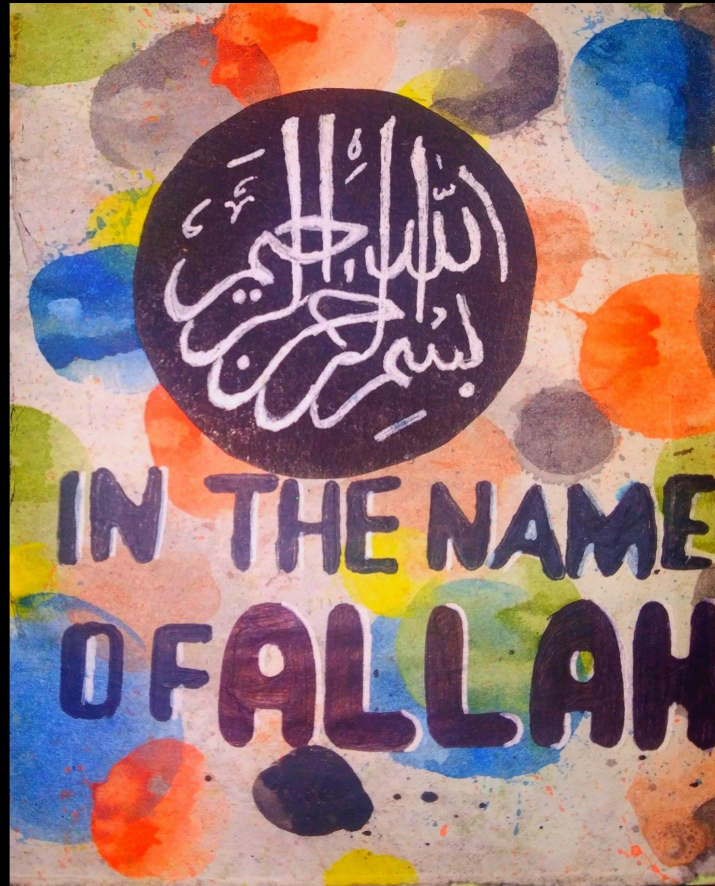 بسم الله الرحمن الرحيم
IN THE NAME
OF ALLAH